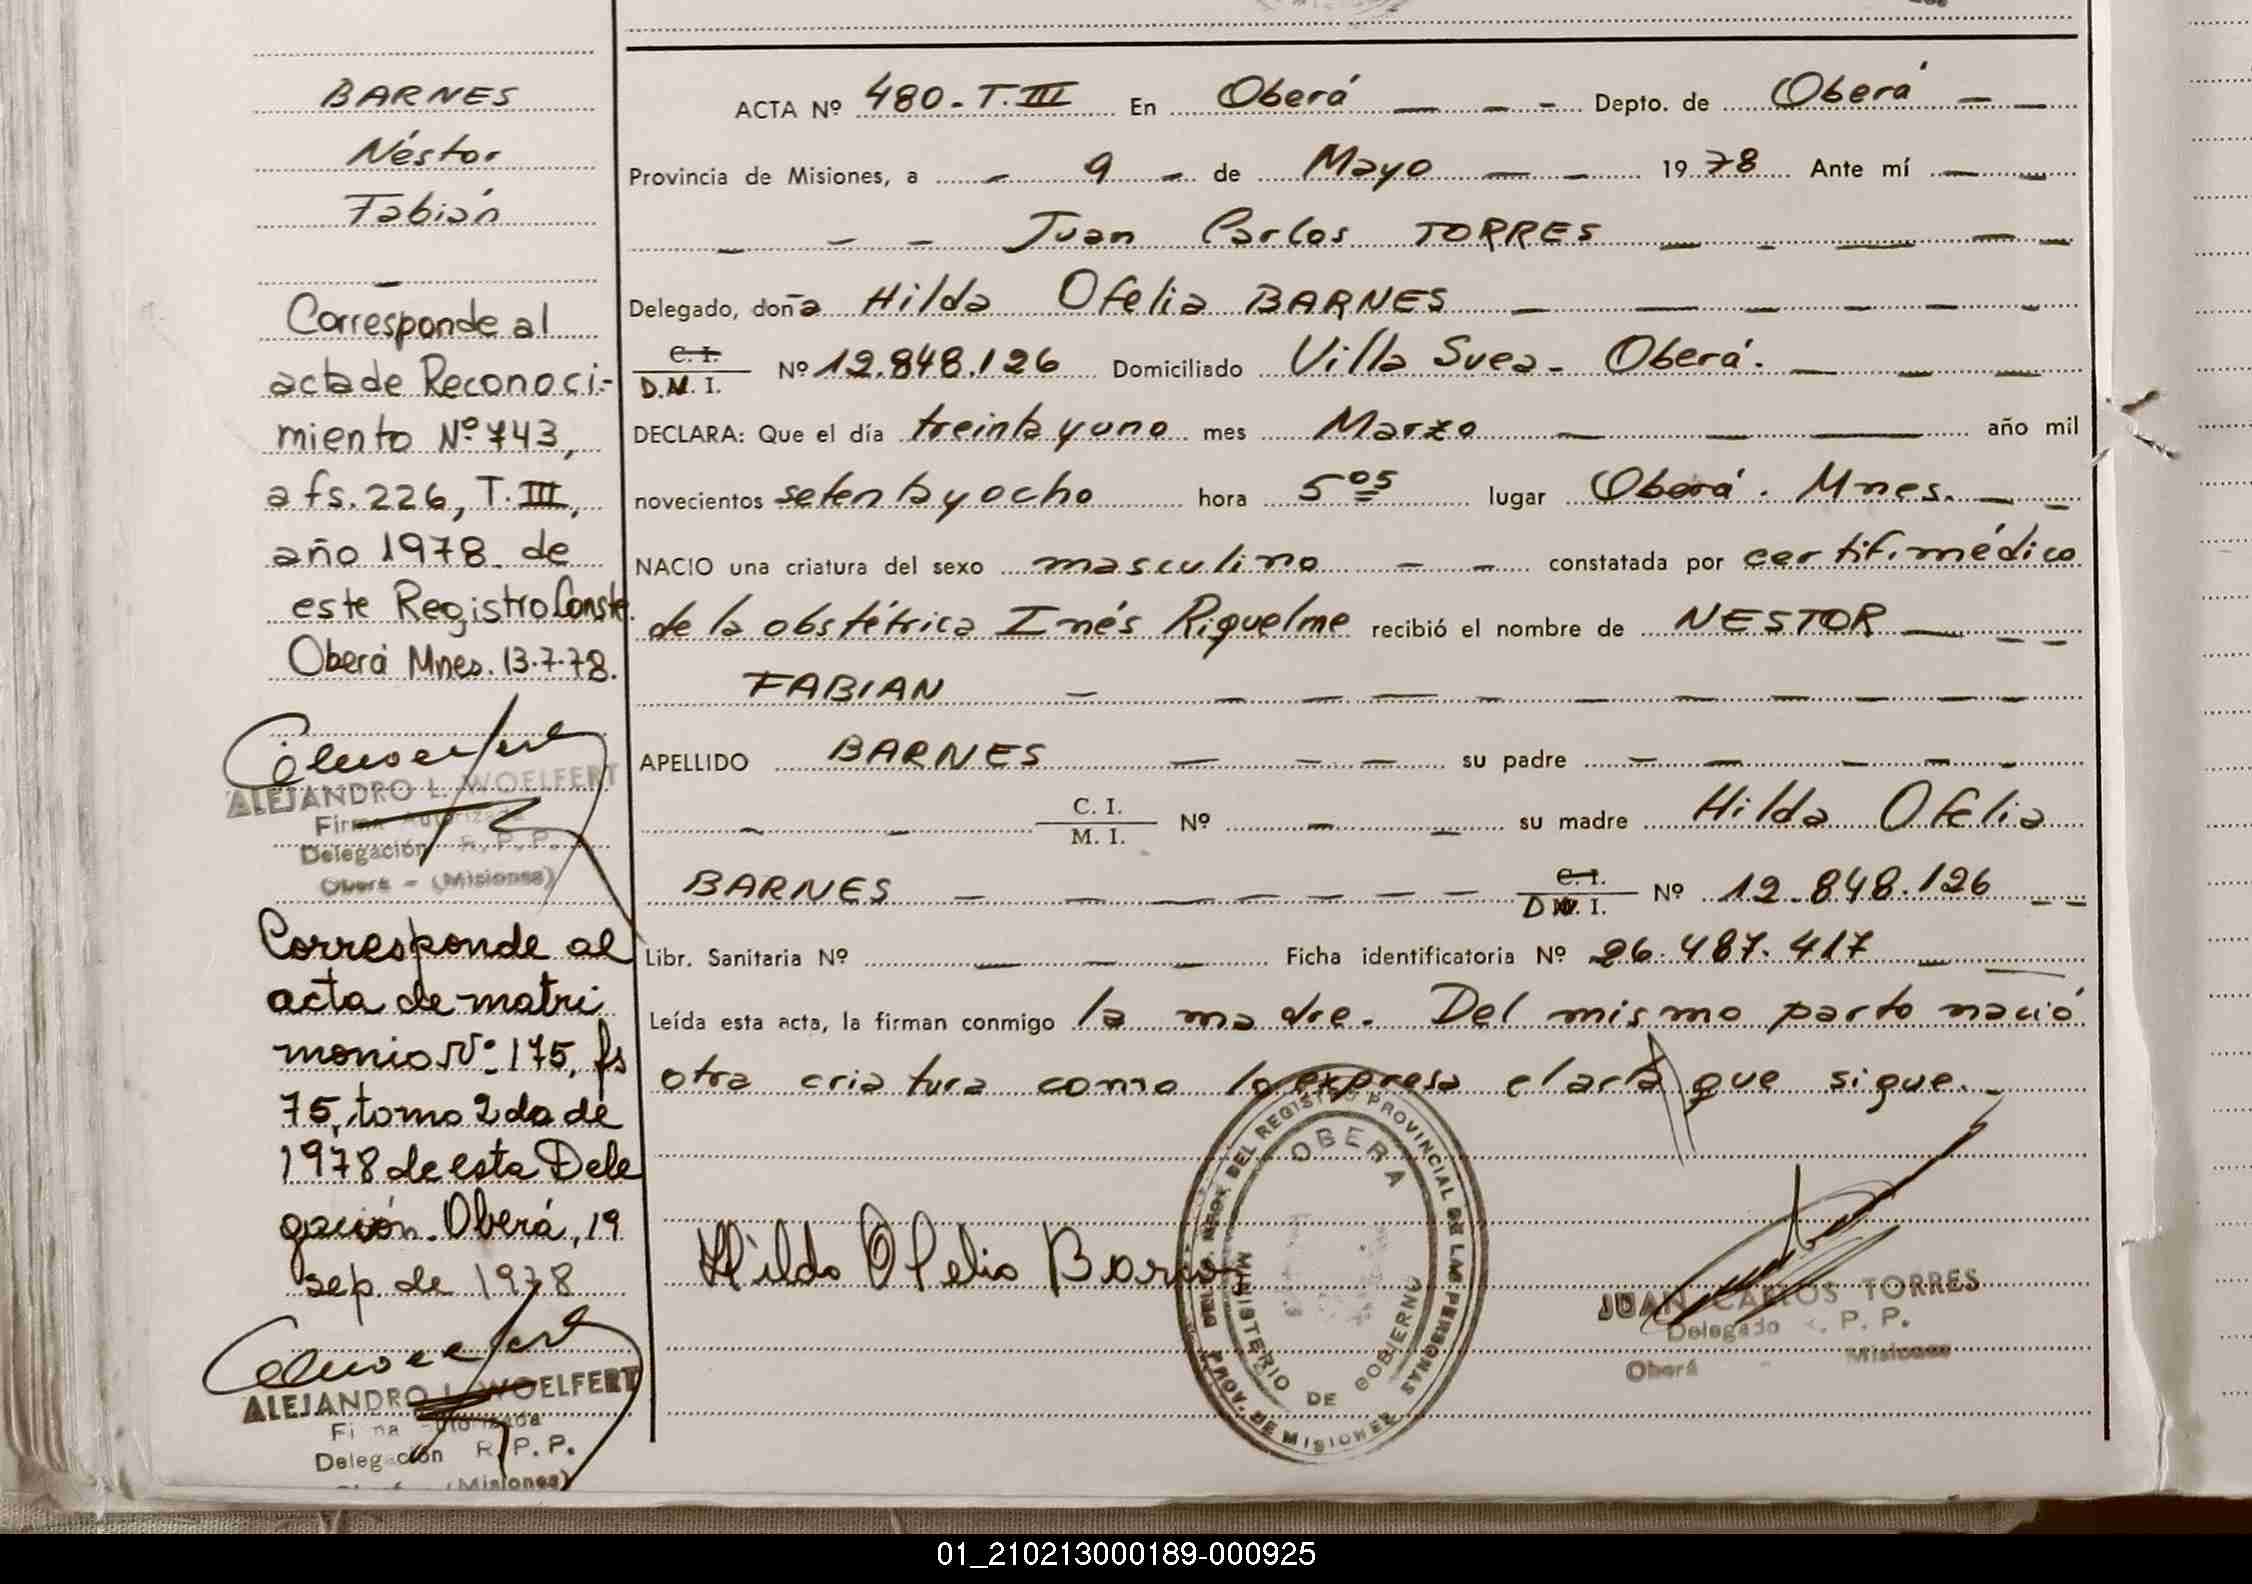 BARNES
Néstor
Fabián
Corresponde al
acta de Reconoci-
miento Nº 743,
a fs. 226, T. III,
año 1978. de
este Registro Conste.
Oberá Mnes. 13.7.78.
ALEJANDRO L. WOELFERT
Firma Autorizada
Delegación R. P. P.
Oberá - (Misiones)
Corresponde al
acta de matri
monio Nº 175, fs
75, tomo 2do de
1978 de esta Dele
gación. Oberá, 19
sep. de 1978
ALEJANDRO L. WOELFERT
Firma Autorizada
Delegación R. P. P.
(Misiones)
ACTA Nº 480 - T. III En Oberá Depto. de Oberá
Provincia de Misiones, a 9 de Mayo 1978 Ante mí
Juan Carlos TORRES
Delegado, doña Hilda Ofelia BARNES
C. I. D.N. I. Nº 12.848.126 Domiciliado Villa Svea - Oberá.
DECLARA: Que el día treinta y uno mes Marzo año mil
novecientos setenta y ocho hora 5 05 lugar Oberá. Mnes.
NACIO una criatura del sexo masculino constatada por certif. médico
de la obstétrica Inés Riquelme recibió el nombre de NESTOR
FABIAN
APELLIDO BARNES su padre
C. I. M. I. Nº su madre Hilda Ofelia
BARNES C. I. D N. I. Nº 12.848.126
Libr. Sanitaria Nº Ficha identificatoria Nº 26.487.417
Leída esta acta, la firman conmigo la madre. Del mismo parto nació
otra criatura como lo expresa el acta que sigue.
Hilda Ofelia Barnes
DEL REGISTRO PROVINCIAL DE LAS PERSONAS
OBERA
MINISTERIO DE GOBIERNO
PROV. DE MISIONES
JUAN CARLOS TORRES
Delegado R. P. P.
Oberá - Misiones
01_210213000189-000925